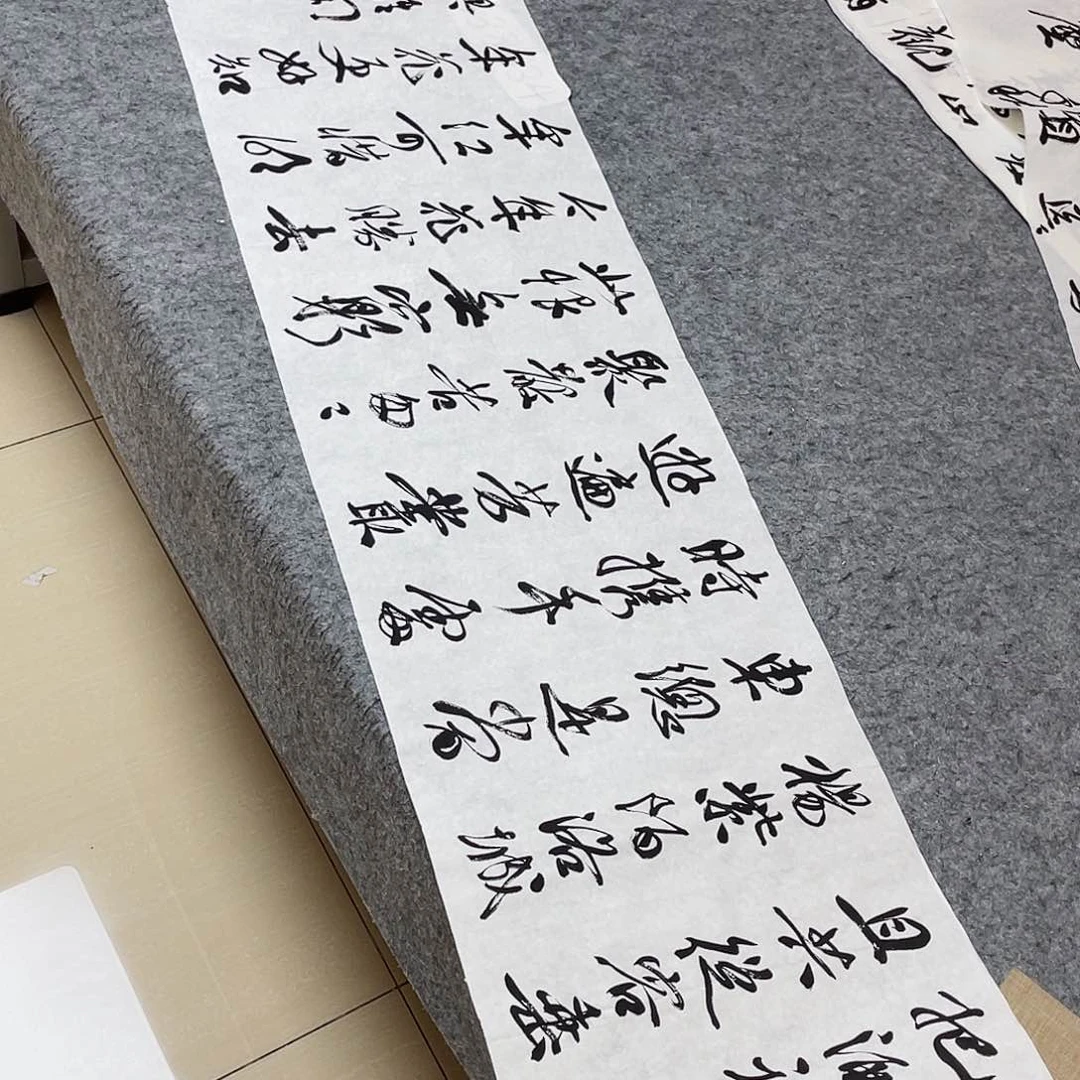 把酒祝
且共從容垂
楊紫陌洛城
東總是當
時攜手處
遊遍芳叢
聚散苦匆〻
此恨無窮
今年花勝去
年紅可惜明
年花更好知